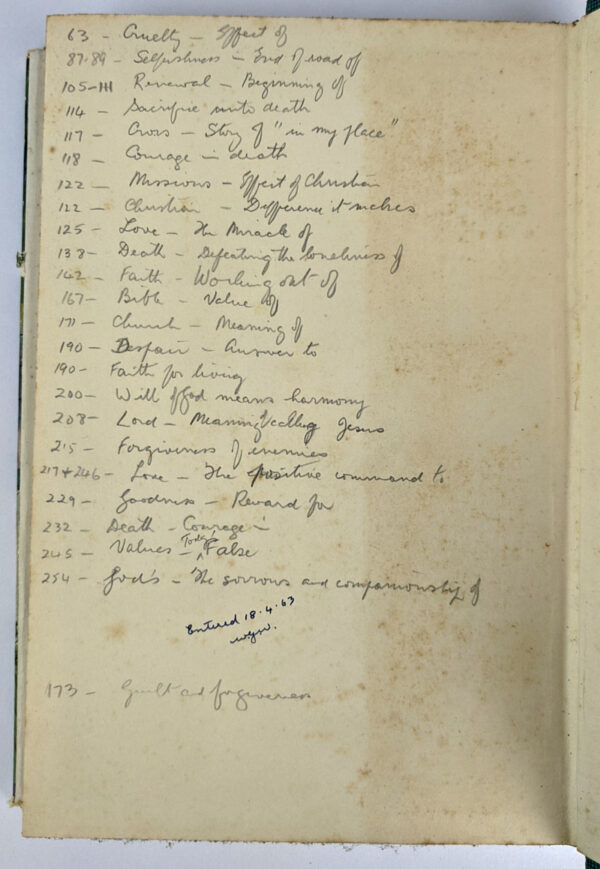 63 - Cruelty - Effect of
87-89 - Selfishness - End of road of
105-111 Renewal - Beginning of
114 - Sacrifice unto death
117 - Cross - Story of "in my place"
118 - Courage in death
122 - Missions - Effect of Christian
122 - Christian - Difference it makes
125 - Love - The Miracle of
138 - Death - Defeating the loneliness of
162 - Faith - Working out of
167 - Bible - Value of
171 - Church - Meaning of
190 - Despair - Answer to
190 - Faith for living
200 - Will of God means harmony
208 - Lord - Meaning of calling Jesus
215 - Forgiveness of enemies
217 + 246 - Love - The positive command to
229 - Goodness - Reward for
232 - Death - Courage in
245 - Values - Today's False
254 - God's - The sorrows and companionship of
Entered 18.4.63
173 - Guilt and forgiveness